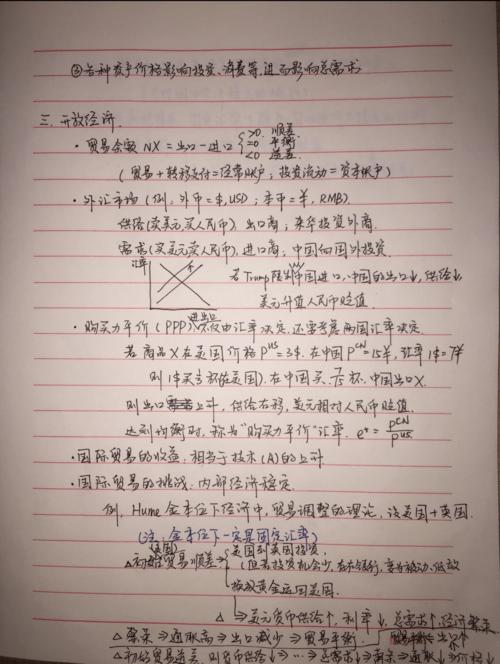 ③各种资产价格影响投资、消费等,进而影响总需求
三.开放经济.
·贸易余额 NX = 出口-进口 { >0. 顺差.
=0 平衡
<0 逆差.
(贸易+转移支付=经常账户; 投资流动=资本账户)
·外汇市场 (例:外币=$,USD; 本币=¥, RMB).
供给(卖美元买人民币). 出口商; 来华投资外商.
需求(买美元卖人民币). 进口商; 中国向国外投资.
汇率
若Trump限制中国进口,中国的出口↓,供给↓,
美元升值人民币贬值.
进出口
·购买力平价 (PPP) 不仅由汇率决定.还需考虑两国汇率决定.
若商品X在美国价格 P^US=3$. 在中国 P^CN=15¥, 汇率 1$=7¥
则1$买 1/3 杯(在美国). 在中国买 7/15 杯. 中国出口X.
则出口上升, 供给右移, 美元相对人民币贬值.
达到均衡时, 称为"购买力平价"汇率. e* = P^CN/P^US
·国际贸易的收益: 相当于技术(A)的上升
·国际贸易的挑战: 内部经济稳定.
例. Hume 金本位下经济中, 贸易调整的理论, 设美国+英国.
(注: 金本位下一定是固定汇率)
(美国)
△初始贸易顺差⇒ 美国到英国投资,
(但若投资机会少,存在银行,
按收黄金运回美国.
△ ⇒美元货币供给↑, 利率↓, 总需求↑,经济繁荣
△ 繁荣⇒通胀高⇒出口减少⇒贸易平衡.
△初始贸易逆差, 则货币供给↓⇒…⇒总需求↓⇒萧条⇒通胀↓